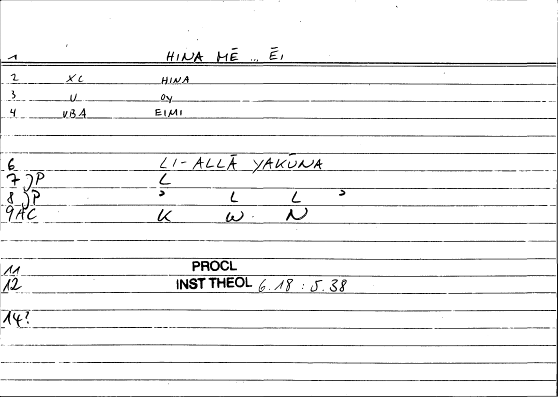 1 HINA MĒ ... ĒI
2 XC HINA
3 U OY
4 VBA EIMI
6 LI-ALLĀ YAKŪNA
7 P L
8 P ᵓ L L ᵓ
9 AC K W N
11 PROCL
12 INST THEOL 6.18 : 5.38
14?